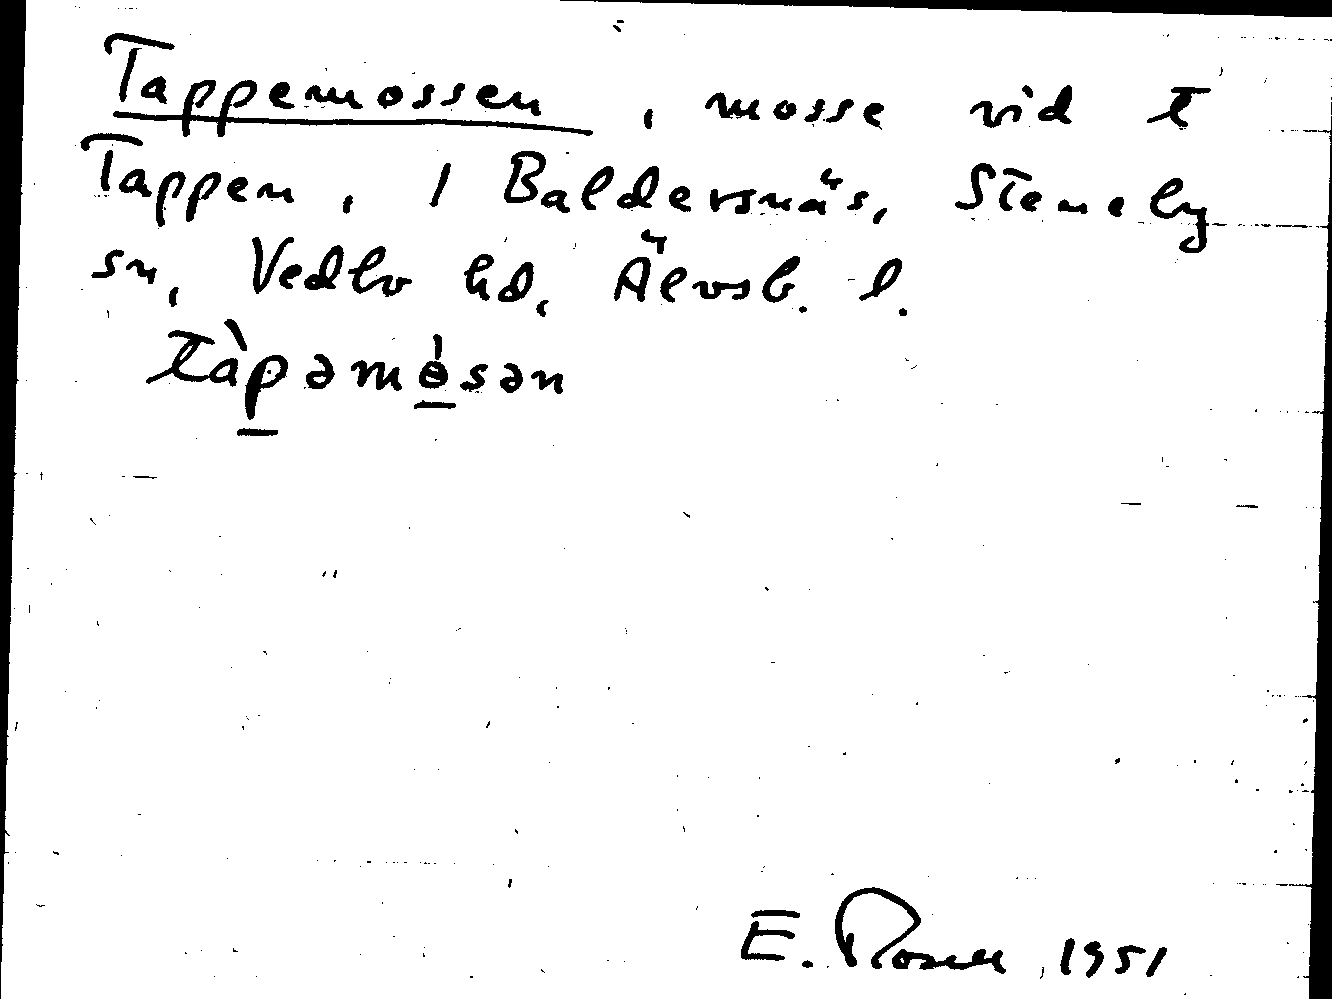 Tappemossen, mosse vid t
Tappen, 1 Baldersnäs, Steneby
sn, Vedbo hd, Älvsb. l.
tàpəmɵ̀sən
E. Rosell 1951